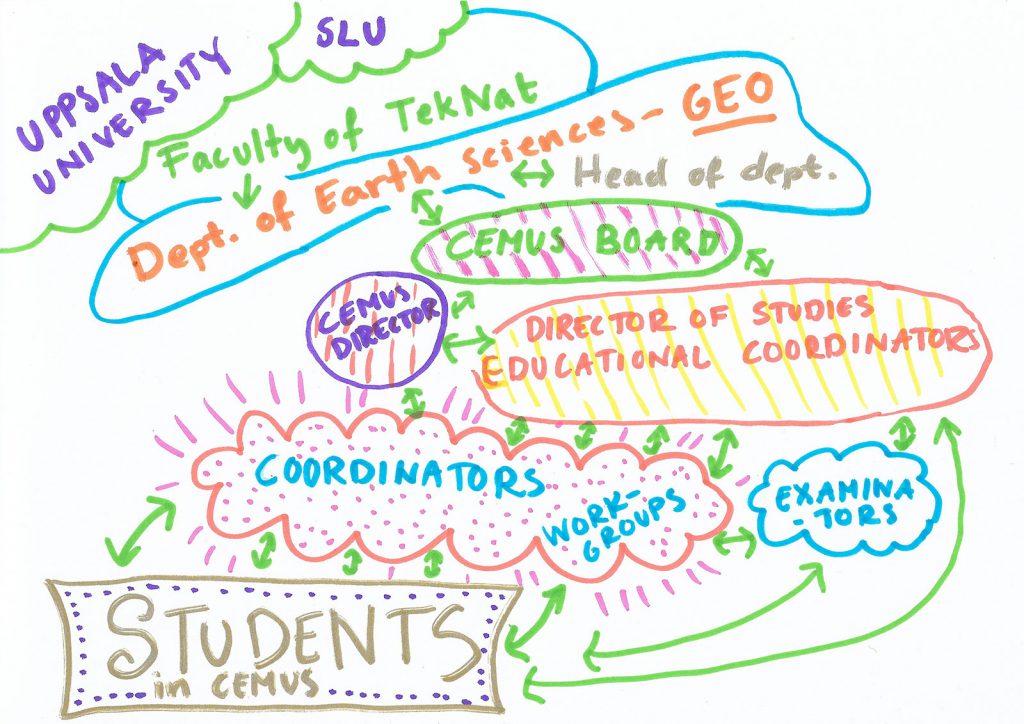 SLU
UPPSALA
UNIVERSITY
Faculty of TekNat
Dept. of Earth sciences - GEO
Head of dept.
CEMUS BOARD
CEMUS
DIRECTOR
DIRECTOR OF STUDIES
EDUCATIONAL COORDINATORS
COORDINATORS
WORK-
GROUPS
EXAMINA
-TORS
STUDENTS
in CEMUS